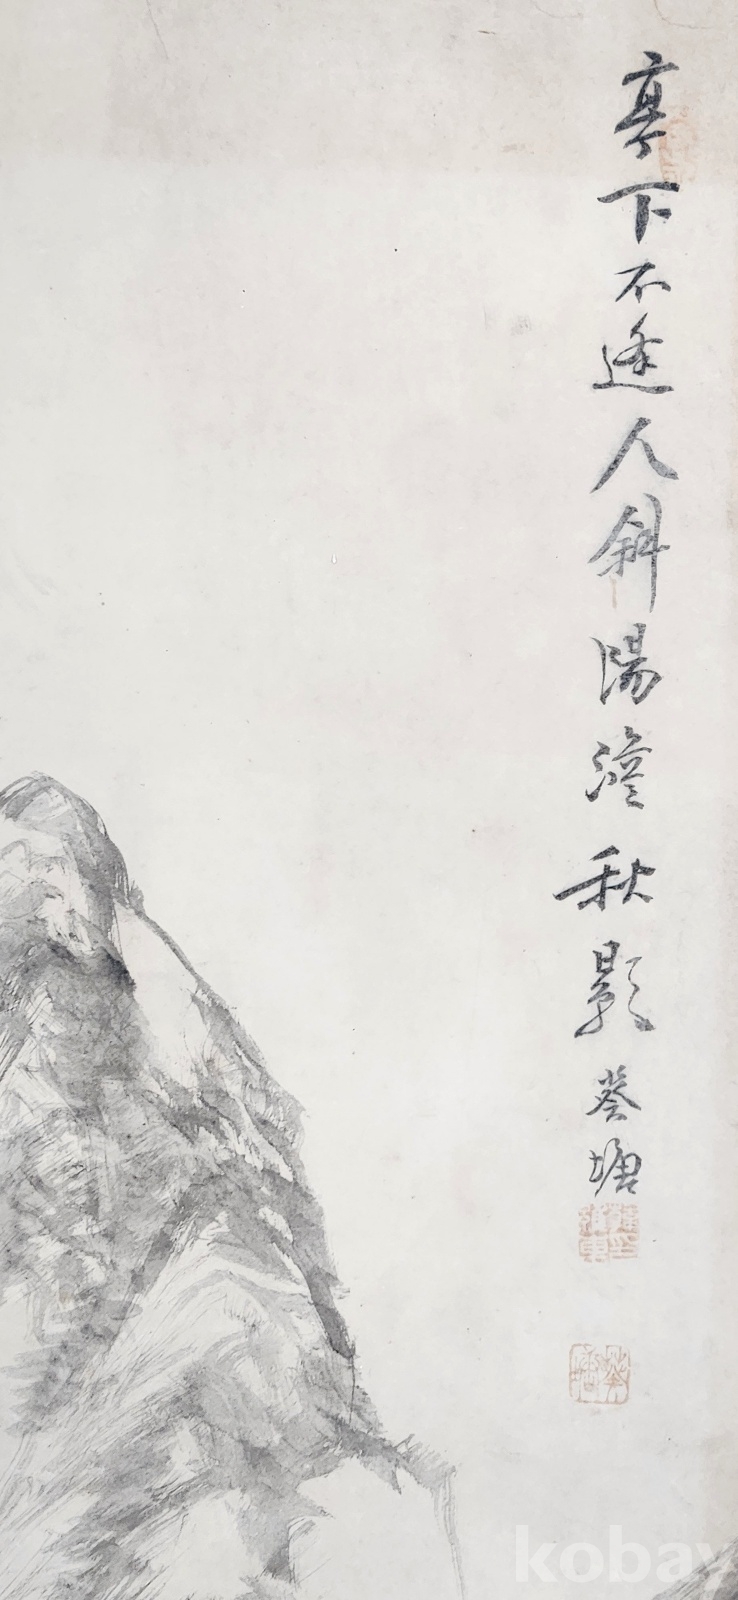 亭下不逢人斜陽澹秋影 葵塘
葵塘
kobay